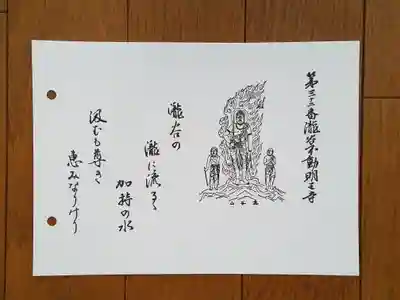 第三十三番瀧谷不動明王寺
瀧谷の
瀧に流るゝ
加持の水
汲むも尊き
恵みなりけり